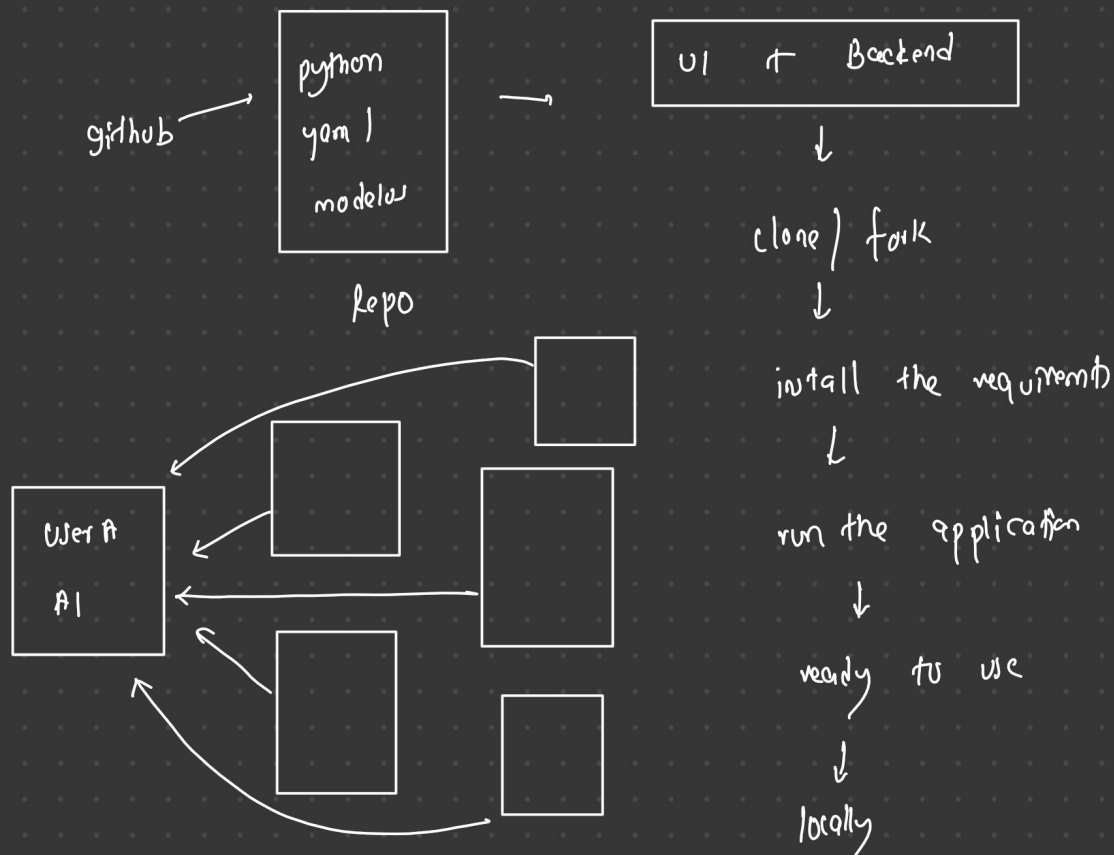 github
python
yaml
models
Repo
UI + Backend
clone / fork
install the requirements
run the application
ready to use
locally
User A
AI